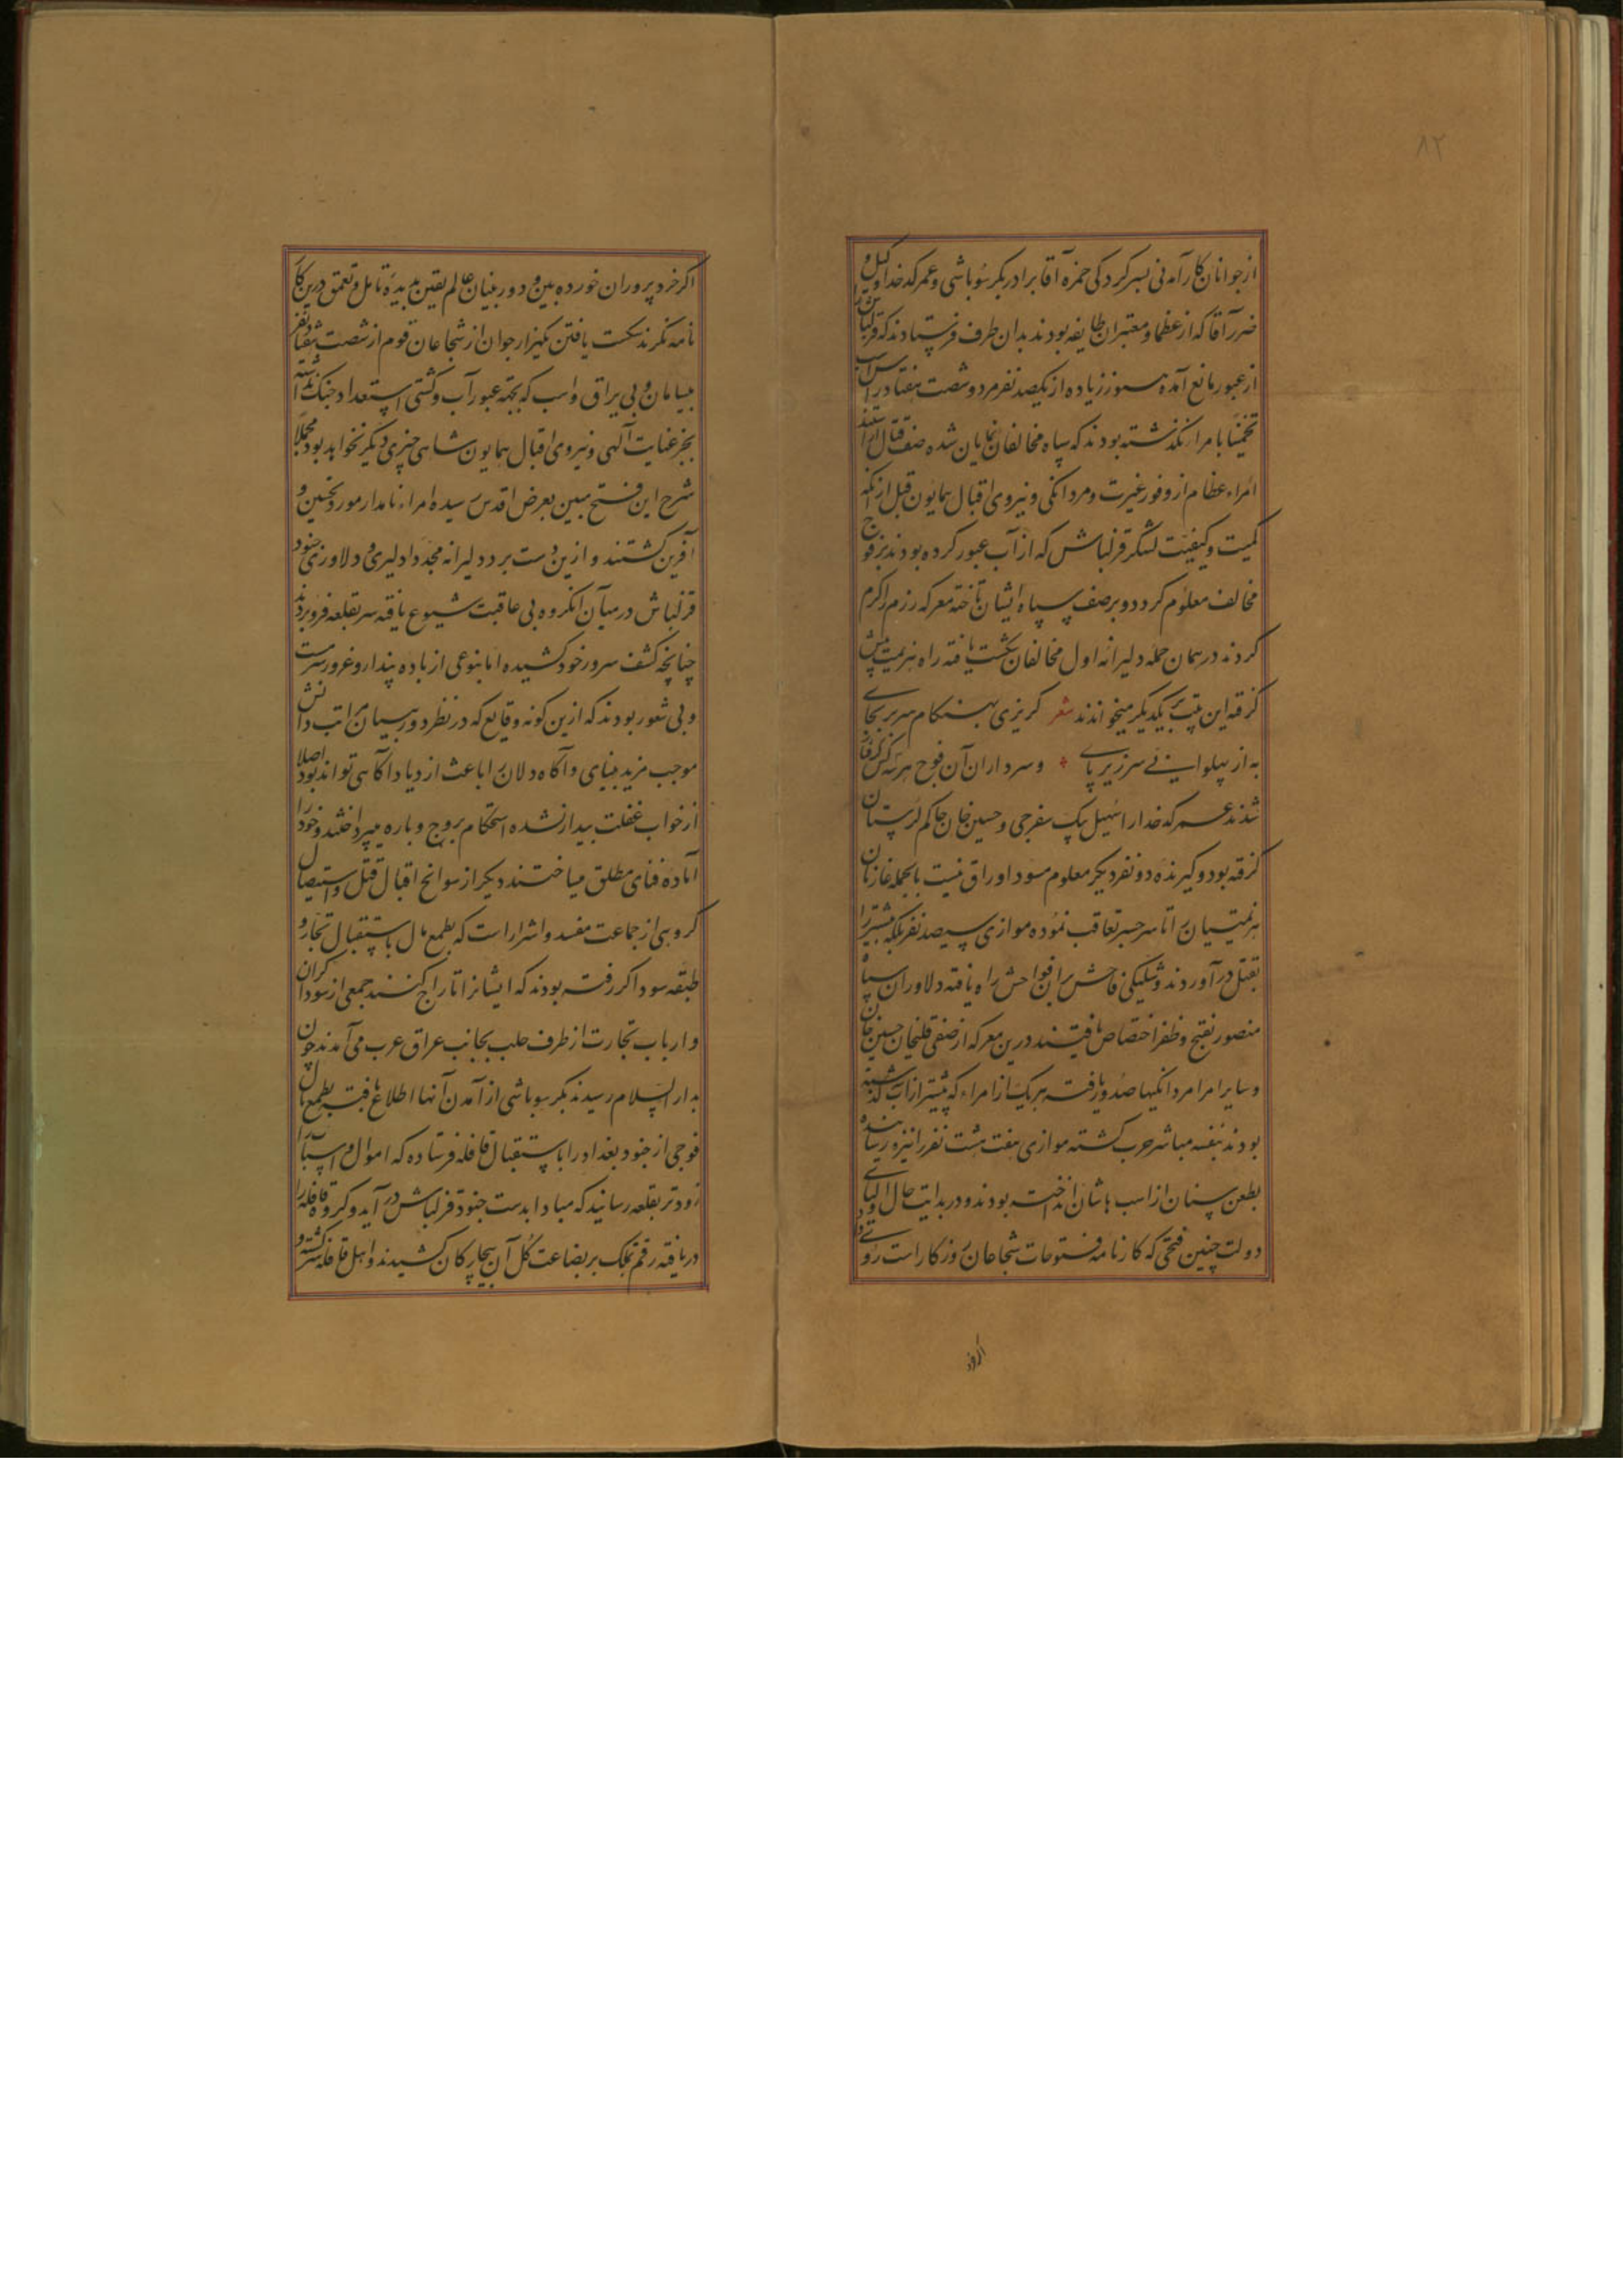 ۸۲
از جوانان کارآمدنی بسرکردکی حمزه آقا برادر بکر سوباشی و عمر کدخدا وکیل و
ضرر آقا که از عظما و معتبران طایفه بودند بدان طرف فرستادند که قزلباش را
از عبور مانع آمده هنوز زیاده از یکصد نفر مرد و شصت هفتاد راس اسب
تخمینا با مرا نکذشته بودند که سپاه مخالفان نمایان شده صف قتال آراستند
امراء عظام از وفور غیرت و مردانکی و نیروی اقبال همایون قبل از آنکه
کمیت و کیفیت لشکر قزلباش که از آب عبور کرده بودند بر فوج
مخالف معلوم کردد و بر صف سپاه ایشان تاخته معرکه رزم را کرم
کردند در همان حمله دلیرانه اول مخالفان شکست یافته راه هزیمت پیش
کرفته این بیت بر یکدیکر میخواندند شعر کریزی بهنکام سر بر بجای
به از پهلوانی و سر زیر پای و سرداران آن فوج هر سه کس کرفتار
شدند عمر کدخدا را سهیل بیک سفرجی و حسین خان حاکم لرستان
کرفته بود و کیرنده دو نفر دیکر معلوم مسود اوراق نیست بالجمله غازیان
هزیمتیان را تا سر جسر تعاقب نموده موازی سیصد نفر بلکه بیشتر را
بقتل درآوردند و شلیکی فاحش بران فواحش راه یافته دلاوران سپاه
منصور بفتح و ظفر اختصاص یافتند درین معرکه از صفی قلیخان حسین خان
و سایر امرا مردانکیها صدور یافت هر یک از امراء که پیشتر از آب کذشته
بودند بنفسه مباشر حرب کشته موازی هفت هشت نفر را نیزه رسانیده
بطعن سنان از اسب هاشان انداخته بودند و در بدایت حال اولیای
دولت چنین فتحی که کارنامه فتوحات شجاعان روزکار است روی داد
اکر خرد
اکر خردپروران خورده بین و دوربینان عالم یقین بدیده تامل و تعمق درین کار
نامه نکرند شکست یافتن یکهزار جوان از شجاعان قوم از شصت هفتاد نفر
بیسامان و بی یراق و اسب که بجهة عبور آب و کشتی استعداد جنک نداشته اند
بجز عنایت آلهی و نیروی اقبال همایون شاهی چیزی دیکر نخواهد بود مجملا
شرح این فتح مبین بعرض اقدس رسیده امراء نامدار مورد تحسین و
آفرین کشتند و ازین دست برد دلیرانه مجددا دلیری و دلاوری جنود
قزلباش در میان آنکروه بی عاقبت شیوع یافته سر بقلعه فرو بردند
چنانچه کشف سر در خود کشیده اما بنوعی از باده پندار و غرور سرمست
و بی شعور بودند که ازین کونه وقایع که در نظر دوربینان مراتب دانش
موجب مزید بینای و آکاه دلان را باعث ازدیاد آکاهی تواند بود اصلا
از خواب غفلت بیدار نشده استحکام بروج و باره میپرداختند و خود را
آماده فنای مطلق میساختند دیکر از سوانح اقبال قتل و استیصال
کروهی از جماعت مفسد و اشرار است که بطمع مال باستقبال تجار و
طبقه سوداکر رفته بودند که ایشانرا تاراج کنند جمعی از سوداکران
و ارباب تجارت از طرف حلب بجانب عراق عرب می آمدند چون
بدارالسلام رسیدند بکر سوباشی از آمدن آنها اطلاع یافته بطمع مال
فوجی از جنود بغداد را باستقبال قافله فرستاده که اموال و اسباب را
زودتر بقلعه رسانند که مبادا بدست جنود قزلباش درآید و کروه قافله را
دریافته رقم تملک بر بضاعت کل آن بیچارکان کشیدند و اهل قافله سرکشته و